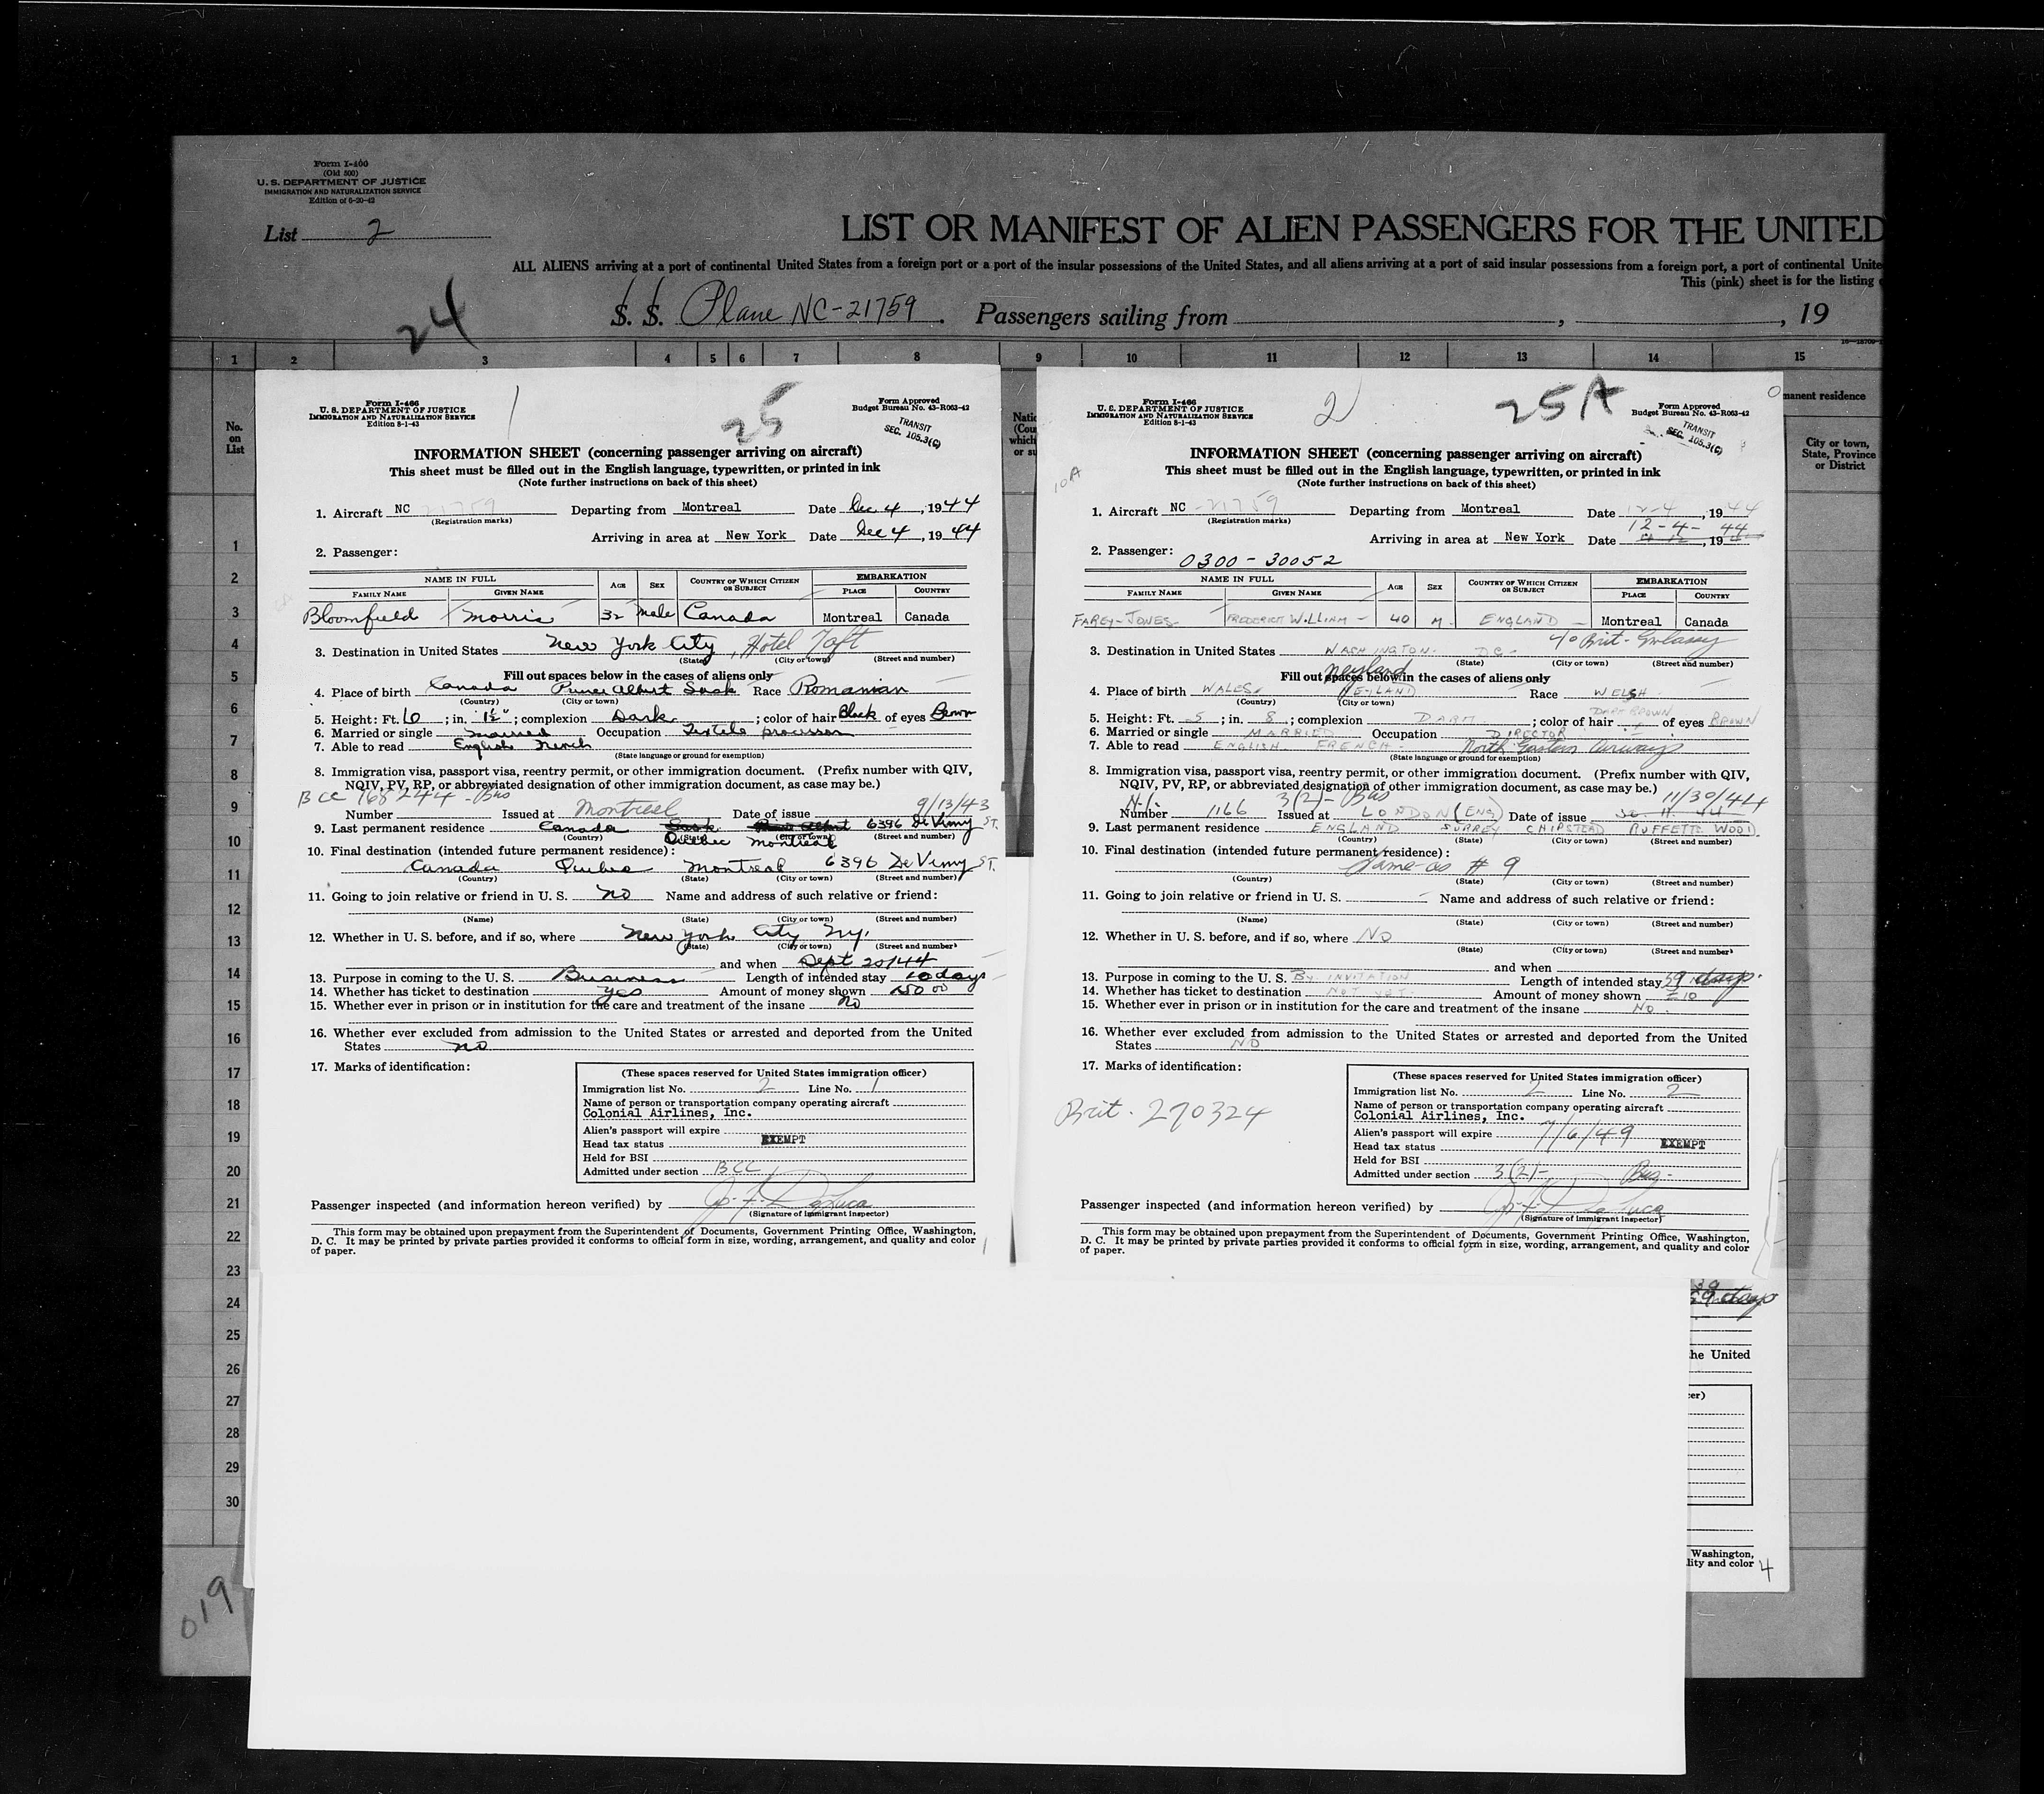 Form I-400
(Old 500)
U. S. DEPARTMENT OF JUSTICE
IMMIGRATION AND NATURALIZATION SERVICE
Edition of 6-20-42
List 2
LIST OR MANIFEST OF ALIEN PASSENGERS FOR THE UNITED
ALL ALIENS arriving at a port of continental United States from a foreign port or a port of the insular possessions of the United States, and all aliens arriving at a port of said insular possessions from a foreign port, a port of continental Unite
This (pink) sheet is for the listing
24
S. S. Plane NC-21759. Passengers sailing from , , 19
1 2 3 4 5 6 7 8 9 10 11 12 13 14 15
No. on List
manent residence
City or town, State, Province or District
1
2
3
4
5
6
7
8
9
10
11
12
13
14
15
16
17
18
19
20
21
22
23
24
25
26
27
28
29
30
019
Form I-466
U. S. DEPARTMENT OF JUSTICE
IMMIGRATION AND NATURALIZATION SERVICE
Edition 8-1-43
1
25
Form Approved
Budget Bureau No. 43-R063-42
TRANSIT
SEC. 105.3(C)
INFORMATION SHEET (concerning passenger arriving on aircraft)
This sheet must be filled out in the English language, typewritten, or printed in ink
(Note further instructions on back of this sheet)
1. Aircraft NC 21759 Departing from Montreal Date Dec 4, 1944
(Registration marks)
Arriving in area at New York Date Dec 4, 1944
2. Passenger:
NAME IN FULL AGE SEX COUNTRY OF WHICH CITIZEN OR SUBJECT EMBARKATION
FAMILY NAME GIVEN NAME PLACE COUNTRY
Bloomfield Morris 32 Male Canada Montreal Canada
3. Destination in United States New York City, Hotel Taft
(State) (City or town) (Street and number)
Fill out spaces below in the cases of aliens only
4. Place of birth Canada Prince Albert Sask Race Romanian
(Country) (City or town)
5. Height: Ft. 6; in. 1½"; complexion Dark; color of hair Black of eyes Brown
6. Married or single Married Occupation Textile processor
7. Able to read English French
(State language or ground for exemption)
8. Immigration visa, passport visa, reentry permit, or other immigration document. (Prefix number with QIV,
NQIV, PV, RP, or abbreviated designation of other immigration document, as case may be.)
BCC 168244 - Bus
Number Issued at Montreal Date of issue 9/13/43
9. Last permanent residence Canada Sask Prince Albert 6396 De Vimy ST.
(Country) (State) (City or town) (Street and number)
Quebec Montreal
10. Final destination (intended future permanent residence):
Canada Quebec Montreal 6396 De Vimy ST.
(Country) (State) (City or town) (Street and number)
11. Going to join relative or friend in U. S. No Name and address of such relative or friend:
(Name) (State) (City or town) (Street and number)
12. Whether in U. S. before, and if so, where New York City N.Y.
(State) (City or town) (Street and number)
and when Sept 20/44
13. Purpose in coming to the U. S. Business Length of intended stay 10 days
14. Whether has ticket to destination yes Amount of money shown
15. Whether ever in prison or in institution for the care and treatment of the insane no
16. Whether ever excluded from admission to the United States or arrested and deported from the United
States no
17. Marks of identification:
(These spaces reserved for United States immigration officer)
Immigration list No. 2 Line No. 1
Name of person or transportation company operating aircraft
Colonial Airlines, Inc.
Alien's passport will expire
Head tax status EXEMPT
Held for BSI
Admitted under section BCC
Passenger inspected (and information hereon verified) by
(Signature of Immigrant inspector)
This form may be obtained upon prepayment from the Superintendent of Documents, Government Printing Office, Washington,
D. C. It may be printed by private parties provided it conforms to official form in size, wording, arrangement, and quality and color
of paper.
1
Form I-466
U. S. DEPARTMENT OF JUSTICE
IMMIGRATION AND NATURALIZATION SERVICE
Edition 8-1-43
2
25A
Form Approved
Budget Bureau No. 43-R063-42
TRANSIT
SEC. 105.3(C)
10A
INFORMATION SHEET (concerning passenger arriving on aircraft)
This sheet must be filled out in the English language, typewritten, or printed in ink
(Note further instructions on back of this sheet)
1. Aircraft NC - 21759 Departing from Montreal Date 12-4, 1944
(Registration marks)
12-4- 44
Arriving in area at New York Date , 19
2. Passenger: 0300-30052
NAME IN FULL AGE SEX COUNTRY OF WHICH CITIZEN OR SUBJECT EMBARKATION
FAMILY NAME GIVEN NAME PLACE COUNTRY
FAREY-JONES FREDERICK WILLIAM 40 M ENGLAND Montreal Canada
c/o Brit. Embassy
3. Destination in United States WASHINGTON. DC
(State) (City or town) (Street and number)
Neyland
Fill out spaces below in the cases of aliens only
4. Place of birth WALES NEYLAND Race WELSH
(Country) (City or town)
5. Height: Ft. 5; in. 8; complexion DARK; color of hair DARK BROWN of eyes BROWN
6. Married or single MARRIED Occupation DIRECTOR
7. Able to read ENGLISH FRENCH North Eastern Airways
(State language or ground for exemption)
8. Immigration visa, passport visa, reentry permit, or other immigration document. (Prefix number with QIV,
NQIV, PV, RP, or abbreviated designation of other immigration document, as case may be.)
3(2)- Bus 11/30/44
Number 1166 Issued at LONDON (ENG) Date of issue 30 11 44
9. Last permanent residence ENGLAND SURREY CHIPSTEAD RUFFETTS WOOD
(Country) (State) (City or town) (Street and number)
10. Final destination (intended future permanent residence):
Same as # 9
(Country) (State) (City or town) (Street and number)
11. Going to join relative or friend in U. S. Name and address of such relative or friend:
(Name) (State) (City or town) (Street and number)
12. Whether in U. S. before, and if so, where NO
(State) (City or town) (Street and number)
and when
13. Purpose in coming to the U. S. BY INVITATION Length of intended stay 59 days.
14. Whether has ticket to destination NOT YET Amount of money shown £10
15. Whether ever in prison or in institution for the care and treatment of the insane NO.
16. Whether ever excluded from admission to the United States or arrested and deported from the United
States NO
17. Marks of identification:
Brit. 270324
(These spaces reserved for United States immigration officer)
Immigration list No. 2 Line No. 2
Name of person or transportation company operating aircraft
Colonial Airlines, Inc.
Alien's passport will expire 7/6/49
Head tax status EXEMPT
Held for BSI
Admitted under section 3(2)- Bus-
Passenger inspected (and information hereon verified) by
(Signature of Immigrant inspector)
This form may be obtained upon prepayment from the Superintendent of Documents, Government Printing Office, Washington,
D. C. It may be printed by private parties provided it conforms to official form in size, wording, arrangement, and quality and color
of paper.
59 days
he United
er)
Washington,
lity and color
4